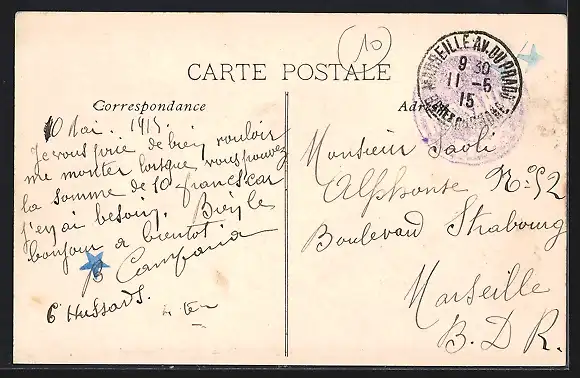 (10)
CARTE POSTALE
MARSEILLE-AV. DU PRADO
9 30
11 -5
15
Correspondance
Adres
10 Mai. 1915.
Je vous prie de bien vouloir
me monter lorsque vous pouvez
la somme de 10 francs car
j'en ai besoin. Bien le
bonjour a bientot
Campana
6e Hussards.
Monsieur Paoli
Alphonse No 52
Boulevard Strasbourg
Marseille
B. D. R.